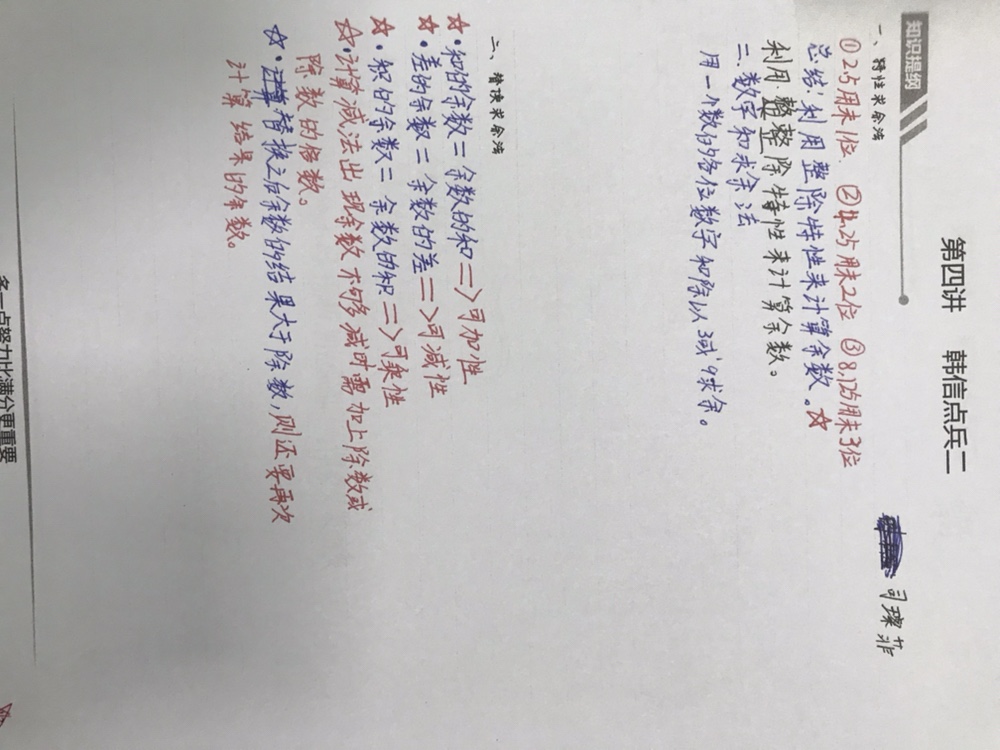 第四讲 韩信点兵二
司璨菲
知识提纲
一、特性求余法
①2.5用末1位. ②4.25用末2位 ③8.125用末3位
总结:利用整除特性来计算余数。☆
利用整除特性来计算余数。
三、数字和求余法
用一个数的各位数字和除以3或9求余。
二、替换求余法
☆·和的余数=余数的和=>可加性
☆·差的余数=余数的差=>可减性
☆·积的余数=余数的积=>可乘性
☆·计算减法出现余数不够减时需加上除数或
除数的倍数。
☆·替换之后余数的结果大于除数,则还要再次
计算结果的余数。
多一点努力比满分更重要